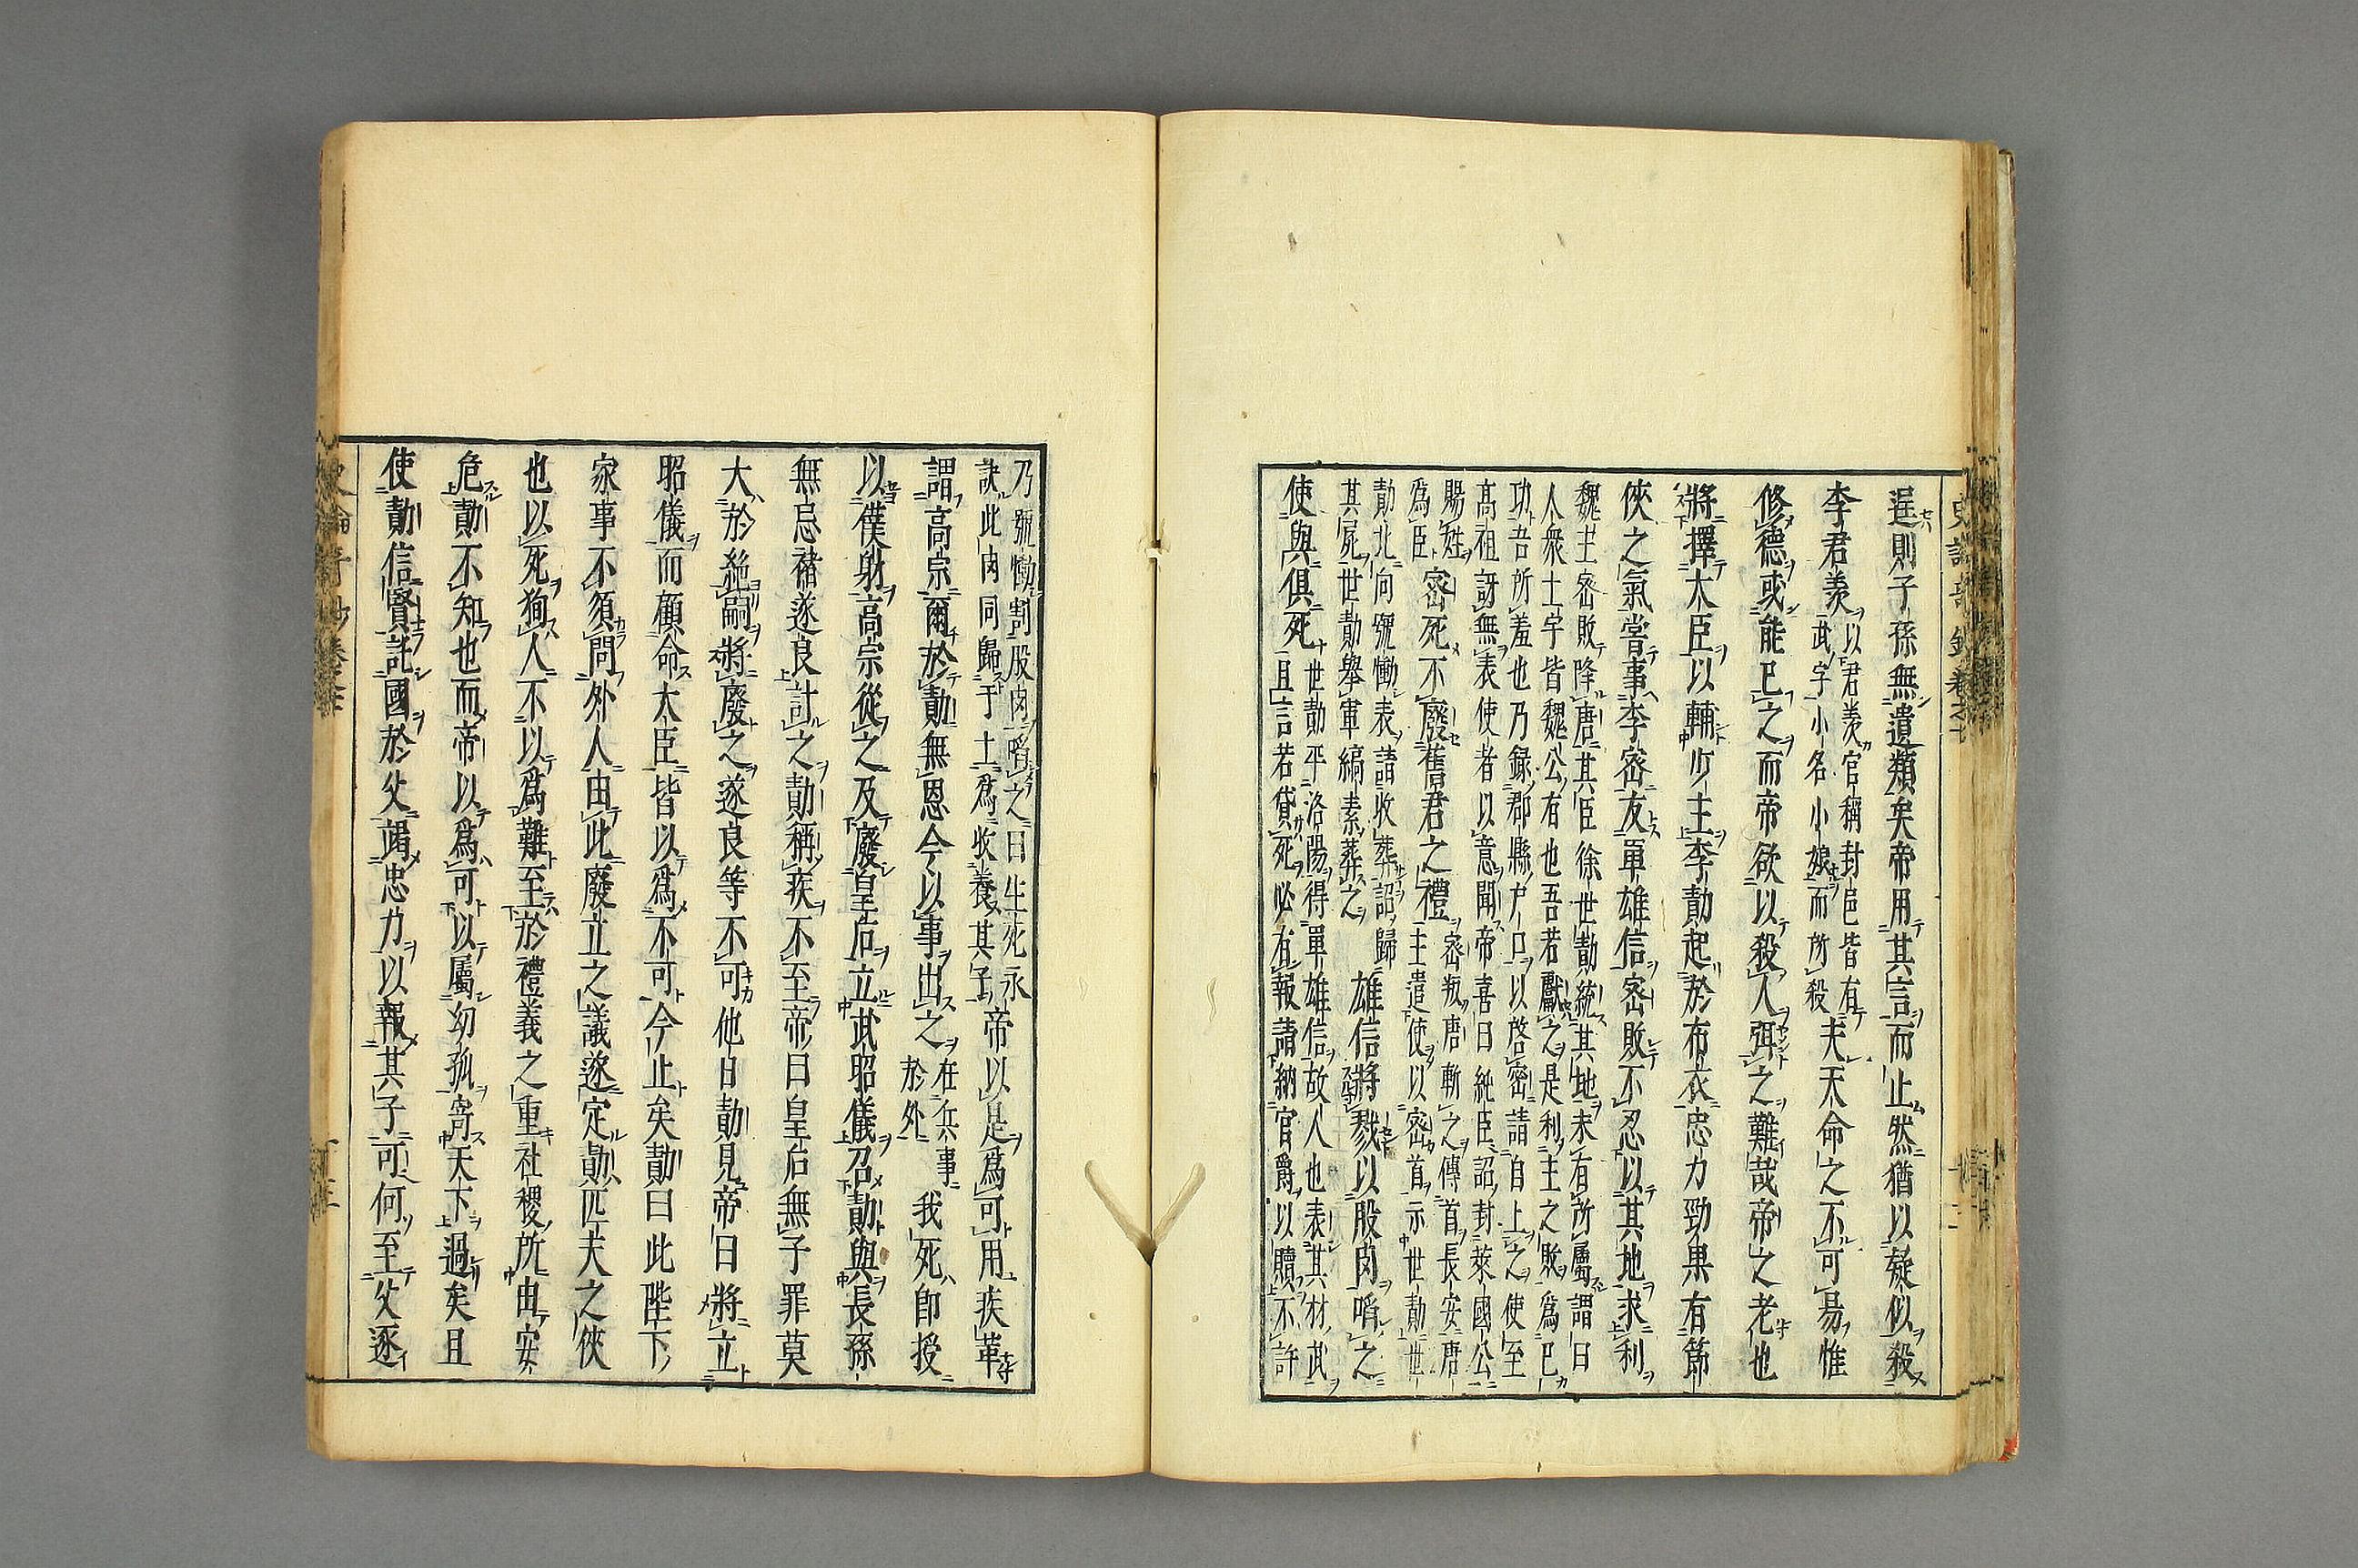 逞則子孫無遺類矣帝用其言而止然猶以疑似殺
李君羨
以君羨官稱封邑皆有
武字小名小娘而所殺
夫天命之不可易惟
修德或能已之而帝欲以殺人弭之難哉帝之老也
將擇大臣以輔少主李勣起於布衣忠力勁果有節
俠之氣嘗事李密友單雄信密敗不忍以其地求利
魏主密敗降唐其臣徐世勣統其地未有所屬謂曰
人衆土宇皆魏公有也吾若獻之是利主之敗爲已
功吾所羞也乃錄郡縣戶口以啓密請自上之使至
高祖訝無表使者以意聞帝喜曰純臣詔封萊國公
賜姓
爲臣
密死不廢舊君之禮
密叛唐斬之傳首長安唐
主遣使以密首示世勣世
勣北向號慟表請收葬詔歸
其屍世勣舉軍縞素葬之
雄信將戮以股肉啗之
使與俱死
世勣平洛陽得單雄信故人也表其材武
且言若貸死必有報請納官爵以贖不許
乃號慟割股肉啗之曰生死永
訣此肉同歸于土爲收養其子
帝以是爲可用疾革
謂高宗爾於勣無恩今以事出之
在兵事
於外
我死卽授
以僕射高宗從之及廢皇后立武昭儀召勣與長孫
無忌褚遂良計之勣稱疾不至帝曰皇后無子罪莫
大於絶嗣將廢之遂良等不可他日勣見帝曰將立
昭儀而顧命大臣皆以爲不可今止矣勣曰此陛下
家事不須問外人由此廢立之議遂定勣匹夫之俠
也以死狥人不以爲難至於禮義之重社稷所由安
危勣不知也而帝以爲可以屬幼孤寄天下過矣且
使勣信賢託國於父竭忠力以報其子可何至父逐